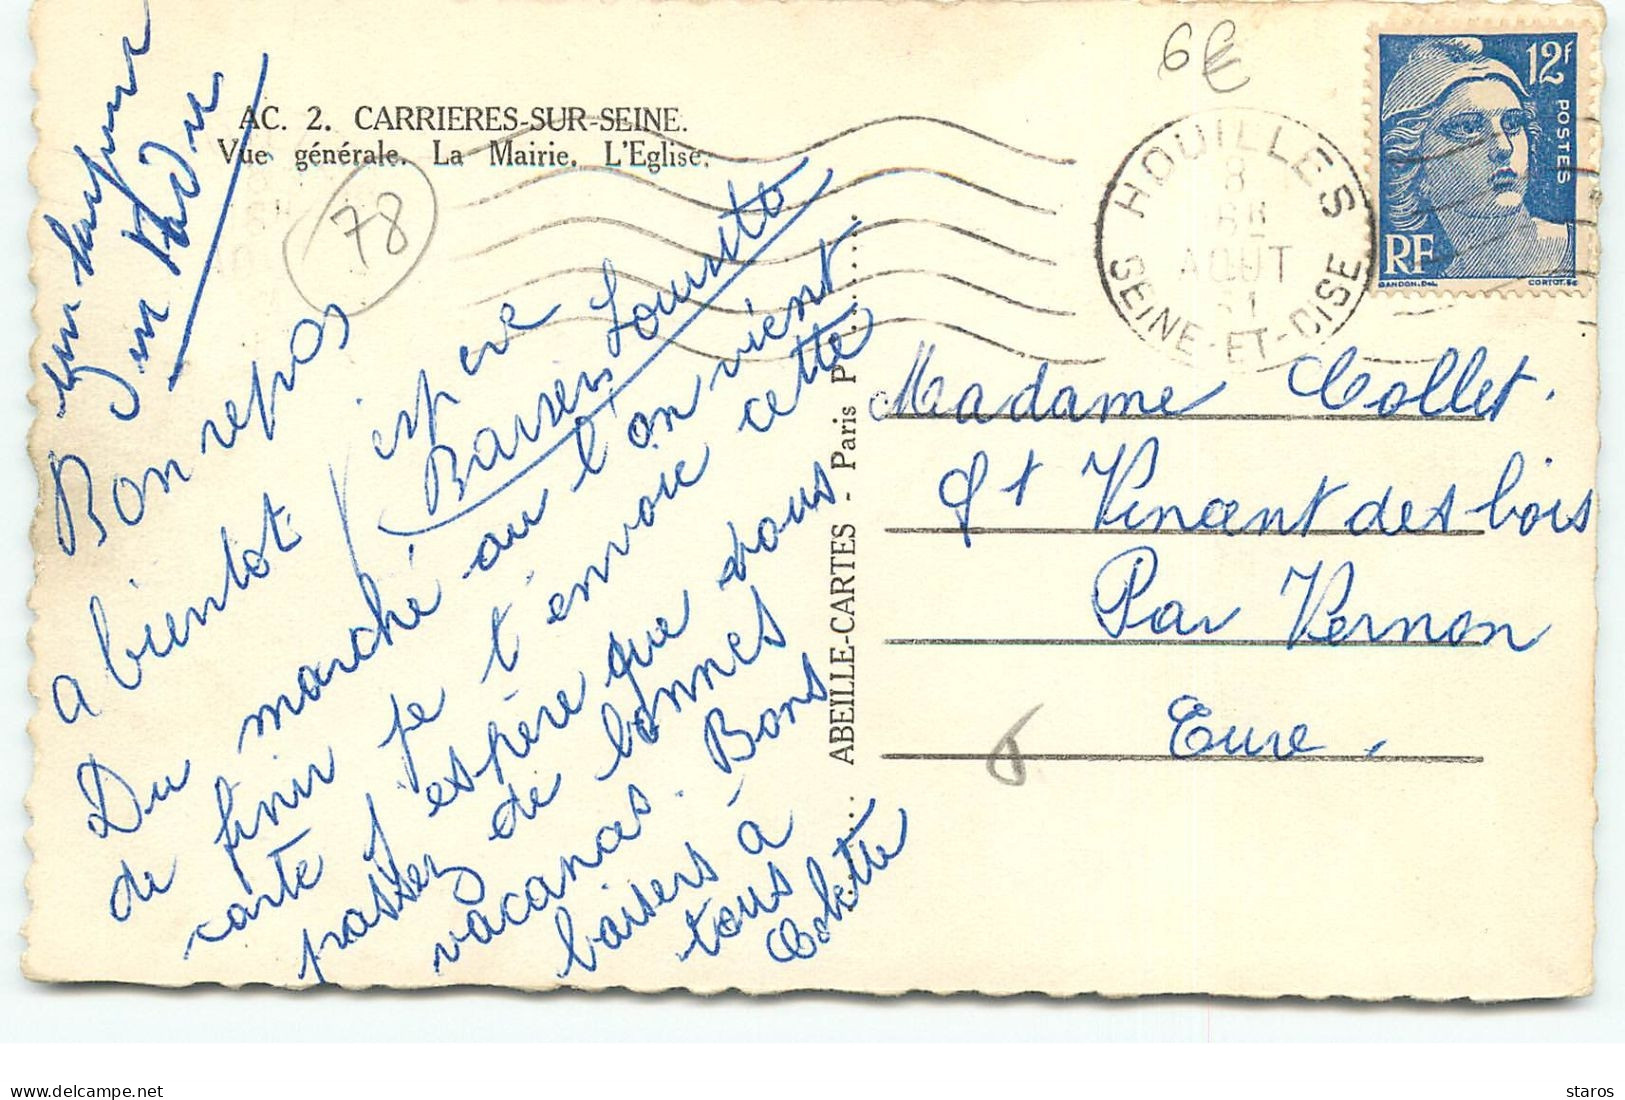 AC. 2. CARRIERES-SUR-SEINE.
Vue générale. La Mairie. L'Eglise.
78
6€
HOUILLES
8
AOUT
SEINE-ET-OISE
12F
POSTES
RF
GANDON.DEL
CORTOT.SC
Bon repos
a bientot j'espere
Du marché ou l'on vient
de finir je t'envoie cette
carte j'espère que vous
passez de bonnes
vacances. Bons
baisers à
tous
Colette
ABEILLE-CARTES - Paris
Madame Collet.
St Vincent des bois
Par Vernon
Eure.
6
staros